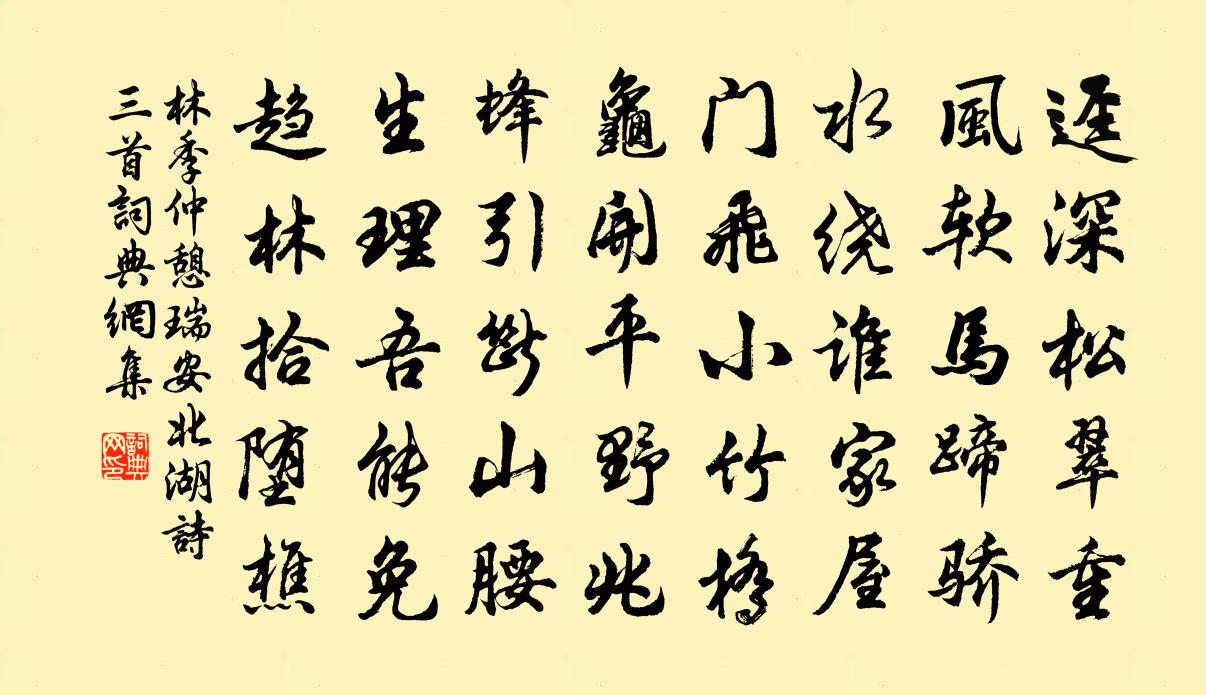 逕深松翠重
風软馬蹄骄
水绕谁家屋
门飛小竹橋
龜開平野兆
蜂引断山腰
生理吾能免
趋林拾堕樵
林季仲憩瑞安北湖詩
三首詞典網集
詞典
网印